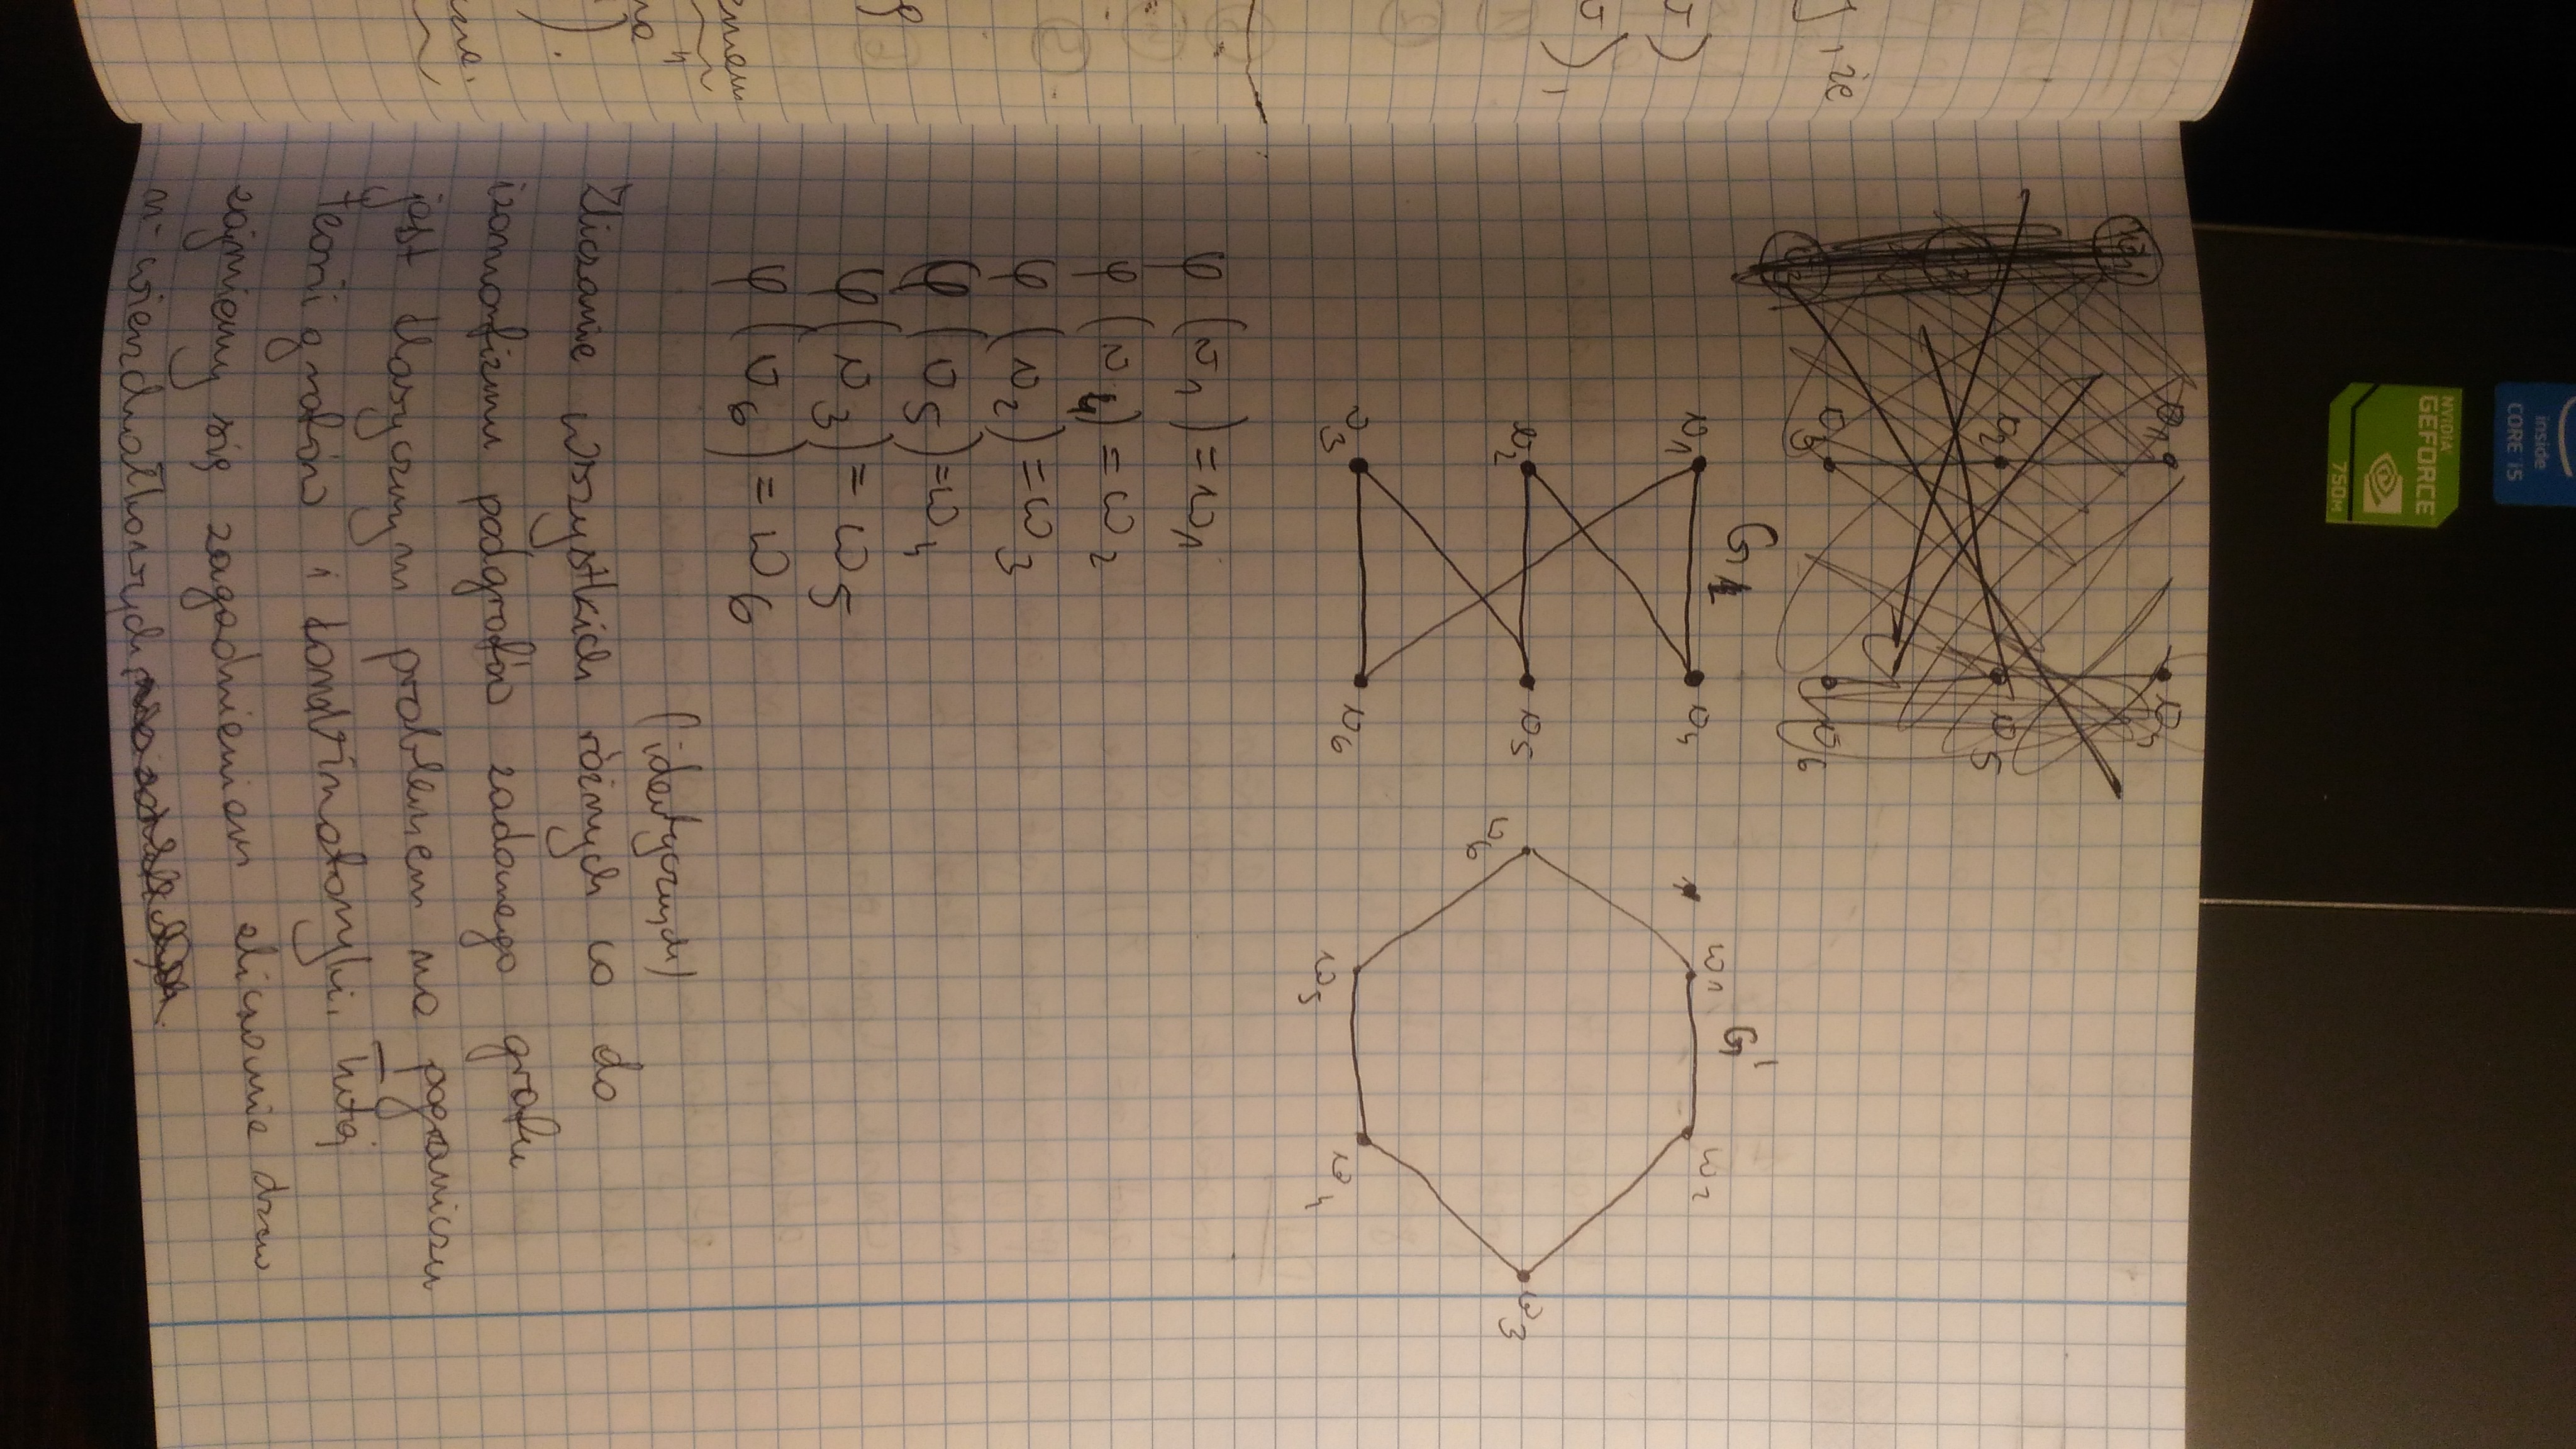 inside
CORE i5
NVIDIA
GEFORCE
750M
v1
v4
v2
v5
v3
v6
G1
G'
v1
v4
w1
w2
v2
v5
w6
w3
v3
v6
w5
w4
, że
φ(v1)=w1
φ(v4)=w2
φ(v2)=w3
φ(v5)=w4
φ(v3)=w5
φ(v6)=w6
(identycznych)
Zliczanie wszystkich różnych co do
izomorfizmu podgrafów zadanego grafu
jest klasycznym problemem na pograniczu
teorii grafów i kombinatoryki. Tutaj
zajmiemy się zagadnieniem zliczanie drzew
n-wierzchołkowych